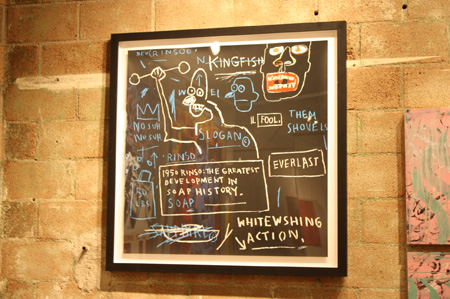 NEW RINSOO
N. KINGFISH
W EI
IL FOOL.
THEM
SHOVELS
NO SUH
NO SUH
SLOGAN©
RINSO
1950 RINSO: THE GREATEST
DEVELOPMENT IN
SOAP HISTORY.
SOAP
EVERLAST
50
LBS.
WHITEWSHING
ACTION.